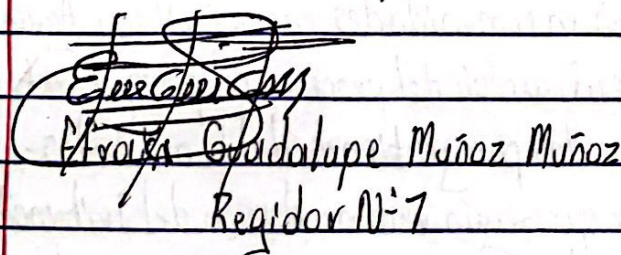 Efraín Guadalupe Muñoz Muñoz
Regidor N=1